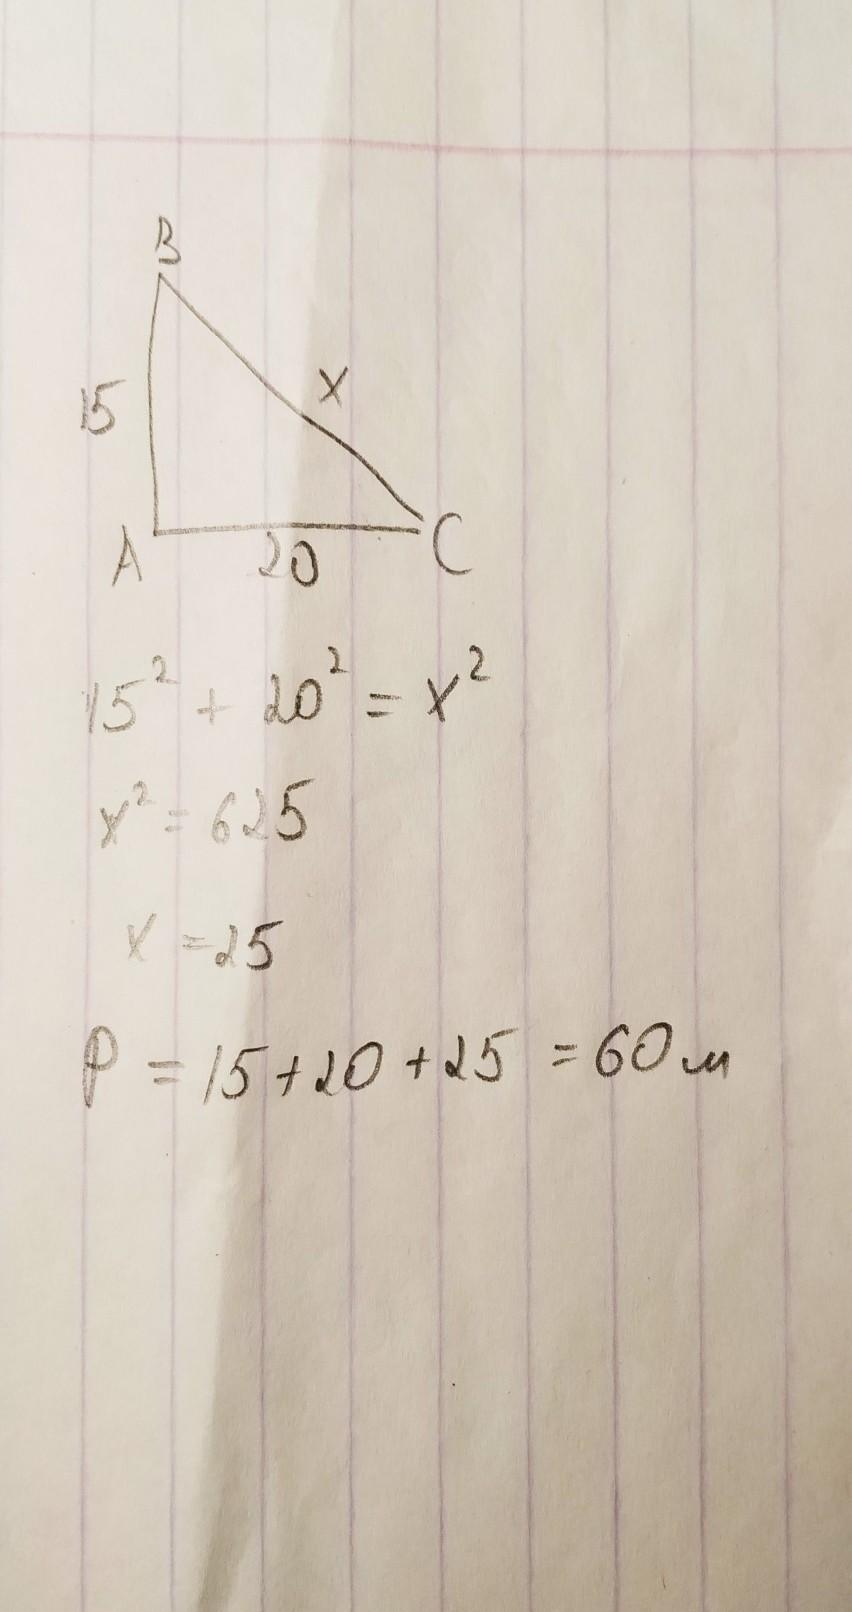 B
15
x
A
20
C
15² + 20² = x²
x² = 625
x = 25
P = 15 + 20 + 25 = 60 м